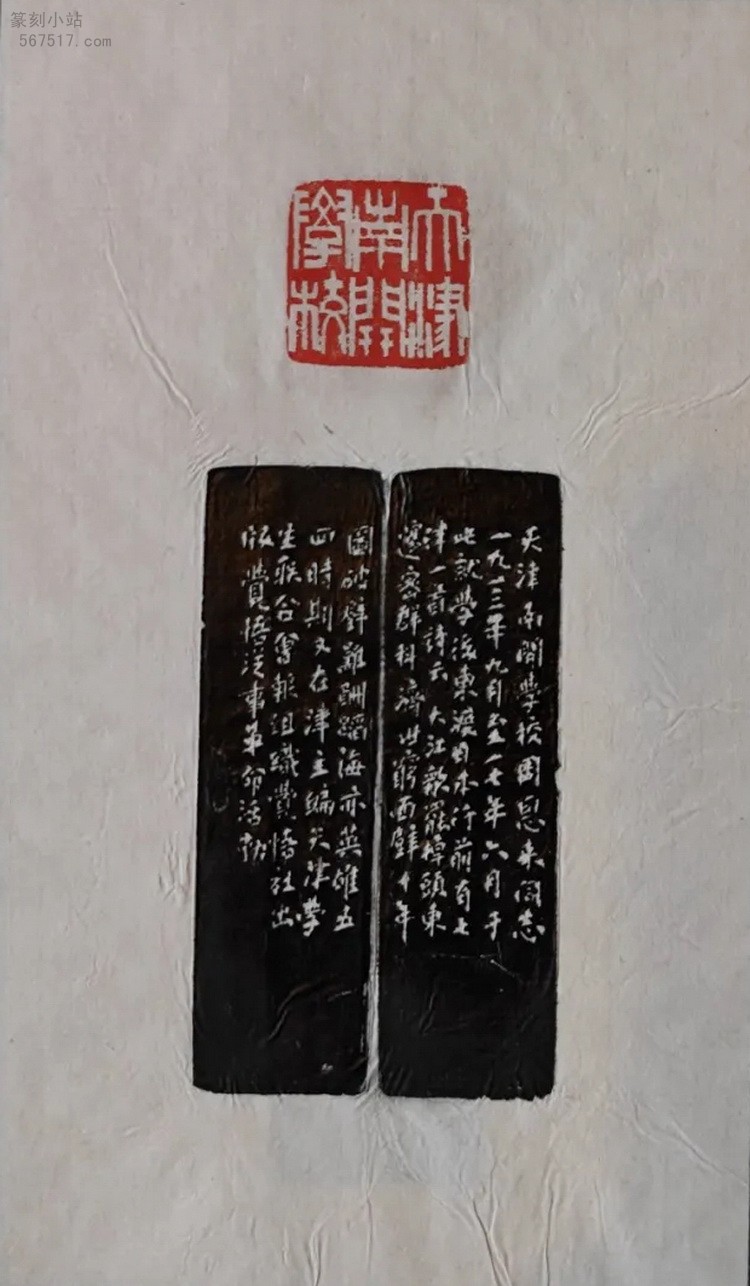 篆刻小站
567517.com
天津
南開
學校
天津南開學校周恩来同志
一九一三年九月至一七年六月于
此就學後東渡日本行前有七
律一首詩云大江歌罷掉頭東
邃密群科濟世窮面壁十年
圖破壁難酬蹈海亦英雄五
四時期又在津主編天津學
生聯合會報組織覺悟社出
版覺悟從事革命活動